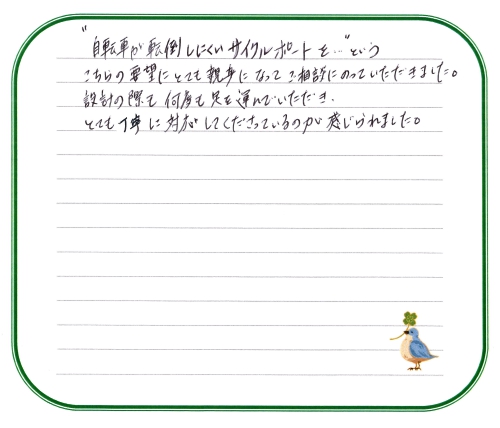 "自転車が転倒しにくいサイクルポートを…"という
こちらの要望にとても親身になってご相談にのっていただきました。
設計の際も何度も足を運んでいただき、
とても丁寧に対応してくださっているのが感じられました。